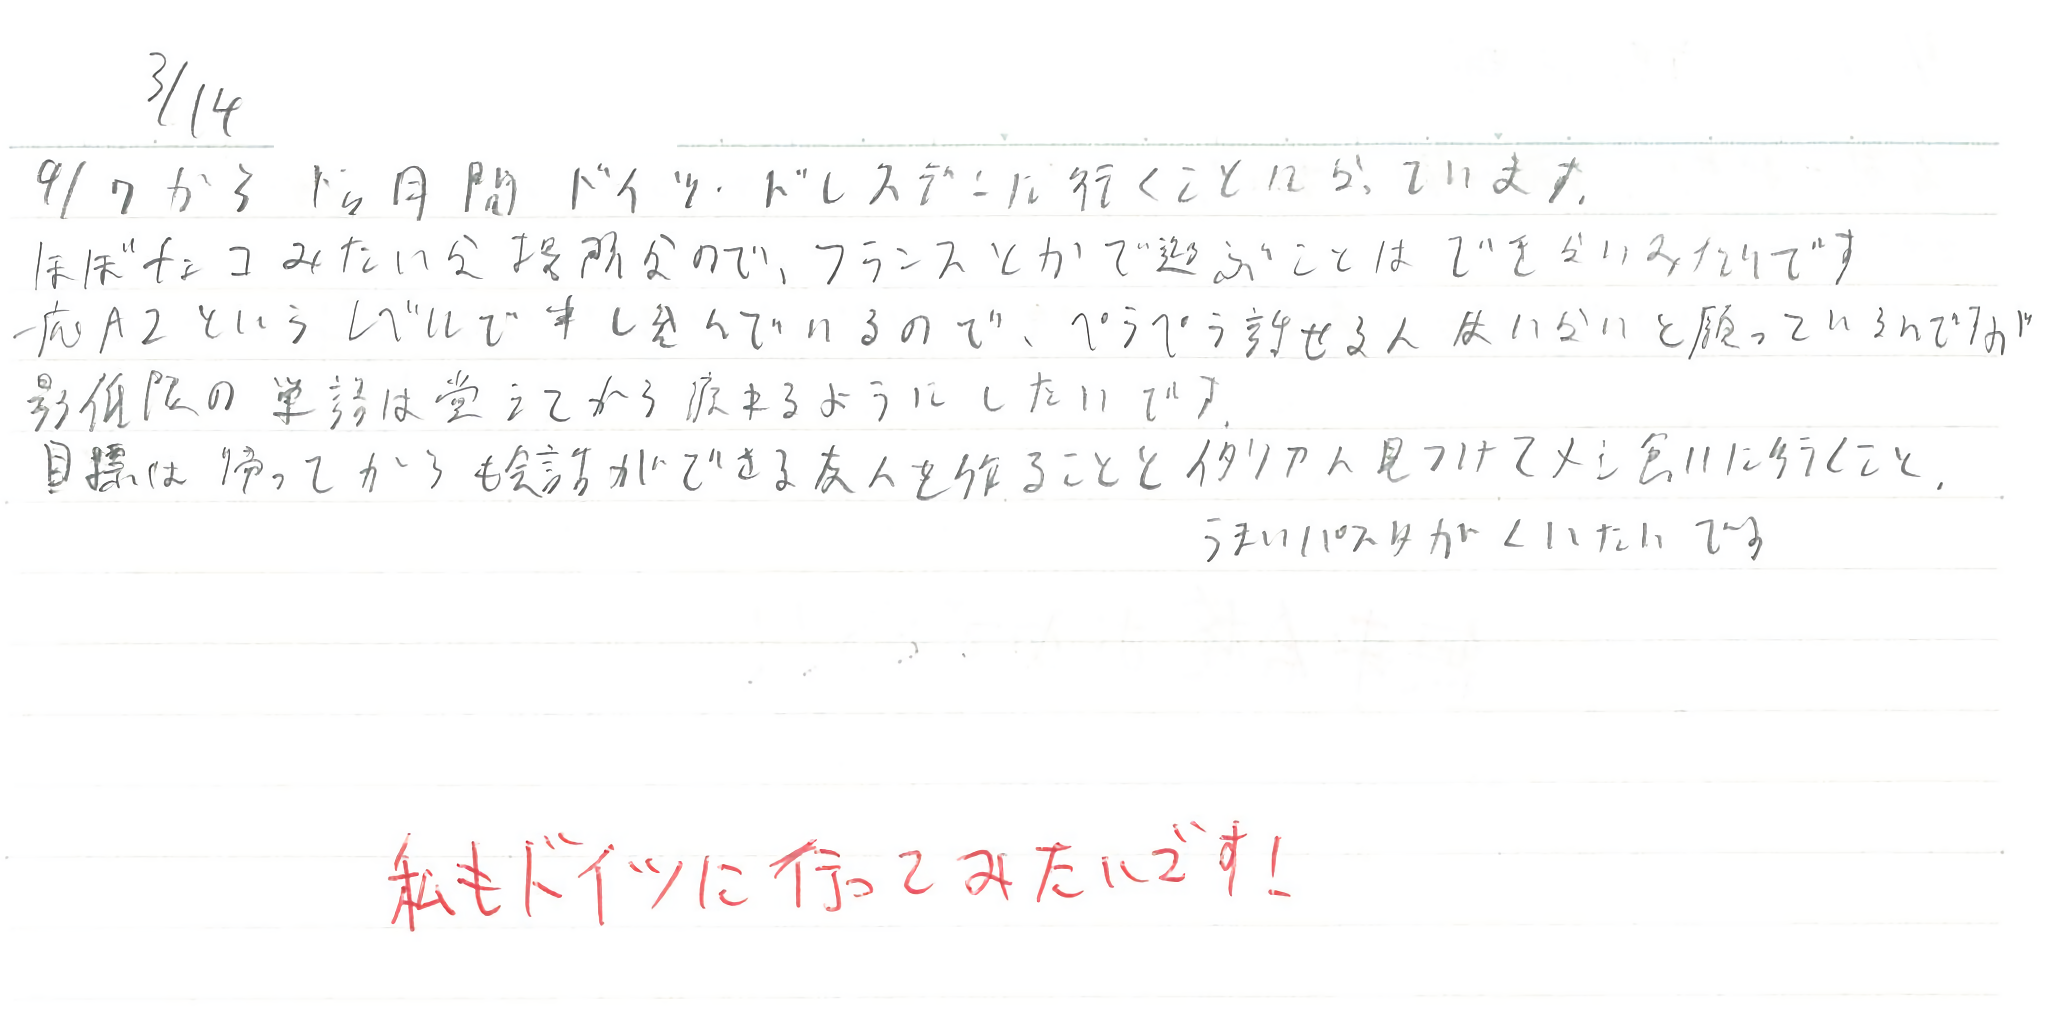 3/14
9/7から1ヶ月間ドイツ・ドレスデンに行くことになっています。
ほぼチェコみたいな場所なので、フランスとかで遊ぶことはできないみたいです
一応A2というレベルで申し込んでいるので、ペラペラ話せる人はいないと願っているんですが
最低限の単語は覚えてから旅来るようにしたいです。
目標は帰ってからも会話ができる友人を作ることとイタリア人見つけてメシ食いに行くこと。
うまいパスタがくいたいです
私もドイツに行ってみたいです!